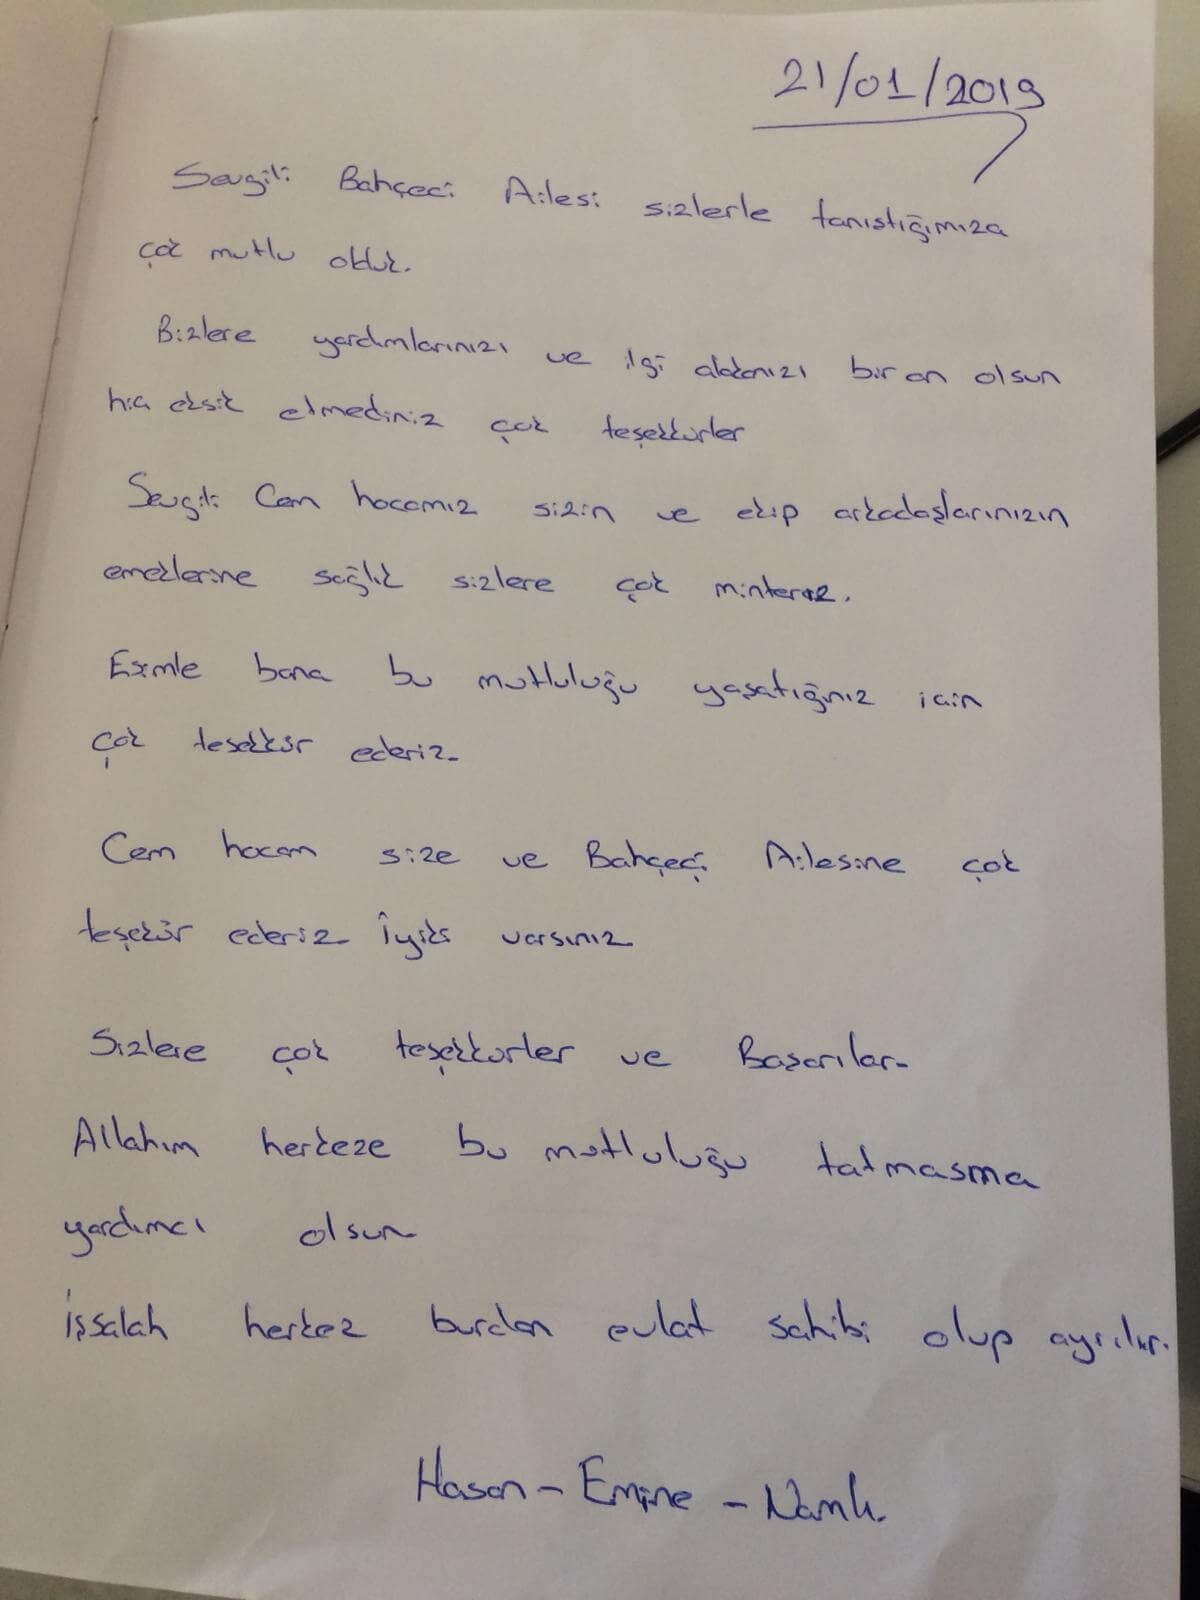 21/01/2019
Sevgili Bahçeci Ailesi sizlerle tanıstığımıza
çok mutlu olduk.
Bizlere yardımlarınızı ve ilgi alakanızı bir an olsun
hic eksik etmediniz çok teşekkürler
Sevgili Cem hocamız sizin ve ekip arkadaşlarınızın
emeklerine sağlık sizlere çok minteraz.
Esimle bana bu mutluluğu yaşatığınız icin
çok tesekkür ederiz.
Cem hocam size ve Bahçeçi Ailesine çok
teşekür ederiz. İyiki varsınız
Sizlere çok teşekkurler ve Basarılar.
Allahım herkeze bu mutluluğu tatmasına
yardımcı olsun
işsalah herkez burdan evlat sahibi olup ayrılır.
Hasan - Emine - Namlı.